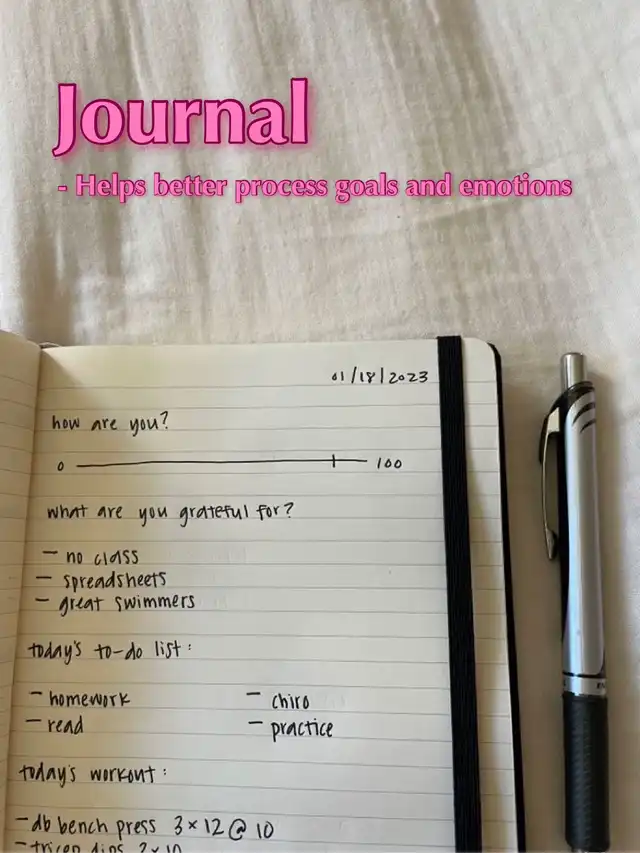 Journal
- Helps better process goals and emotions
01/18/2023
how are you?
0 100
what are you grateful for?
- no class
- spreadsheets
- great swimmers
today's to-do list:
- homework - chiro
- read - practice
today's workout:
- db bench press 3x12 @ 10
- tricep dips